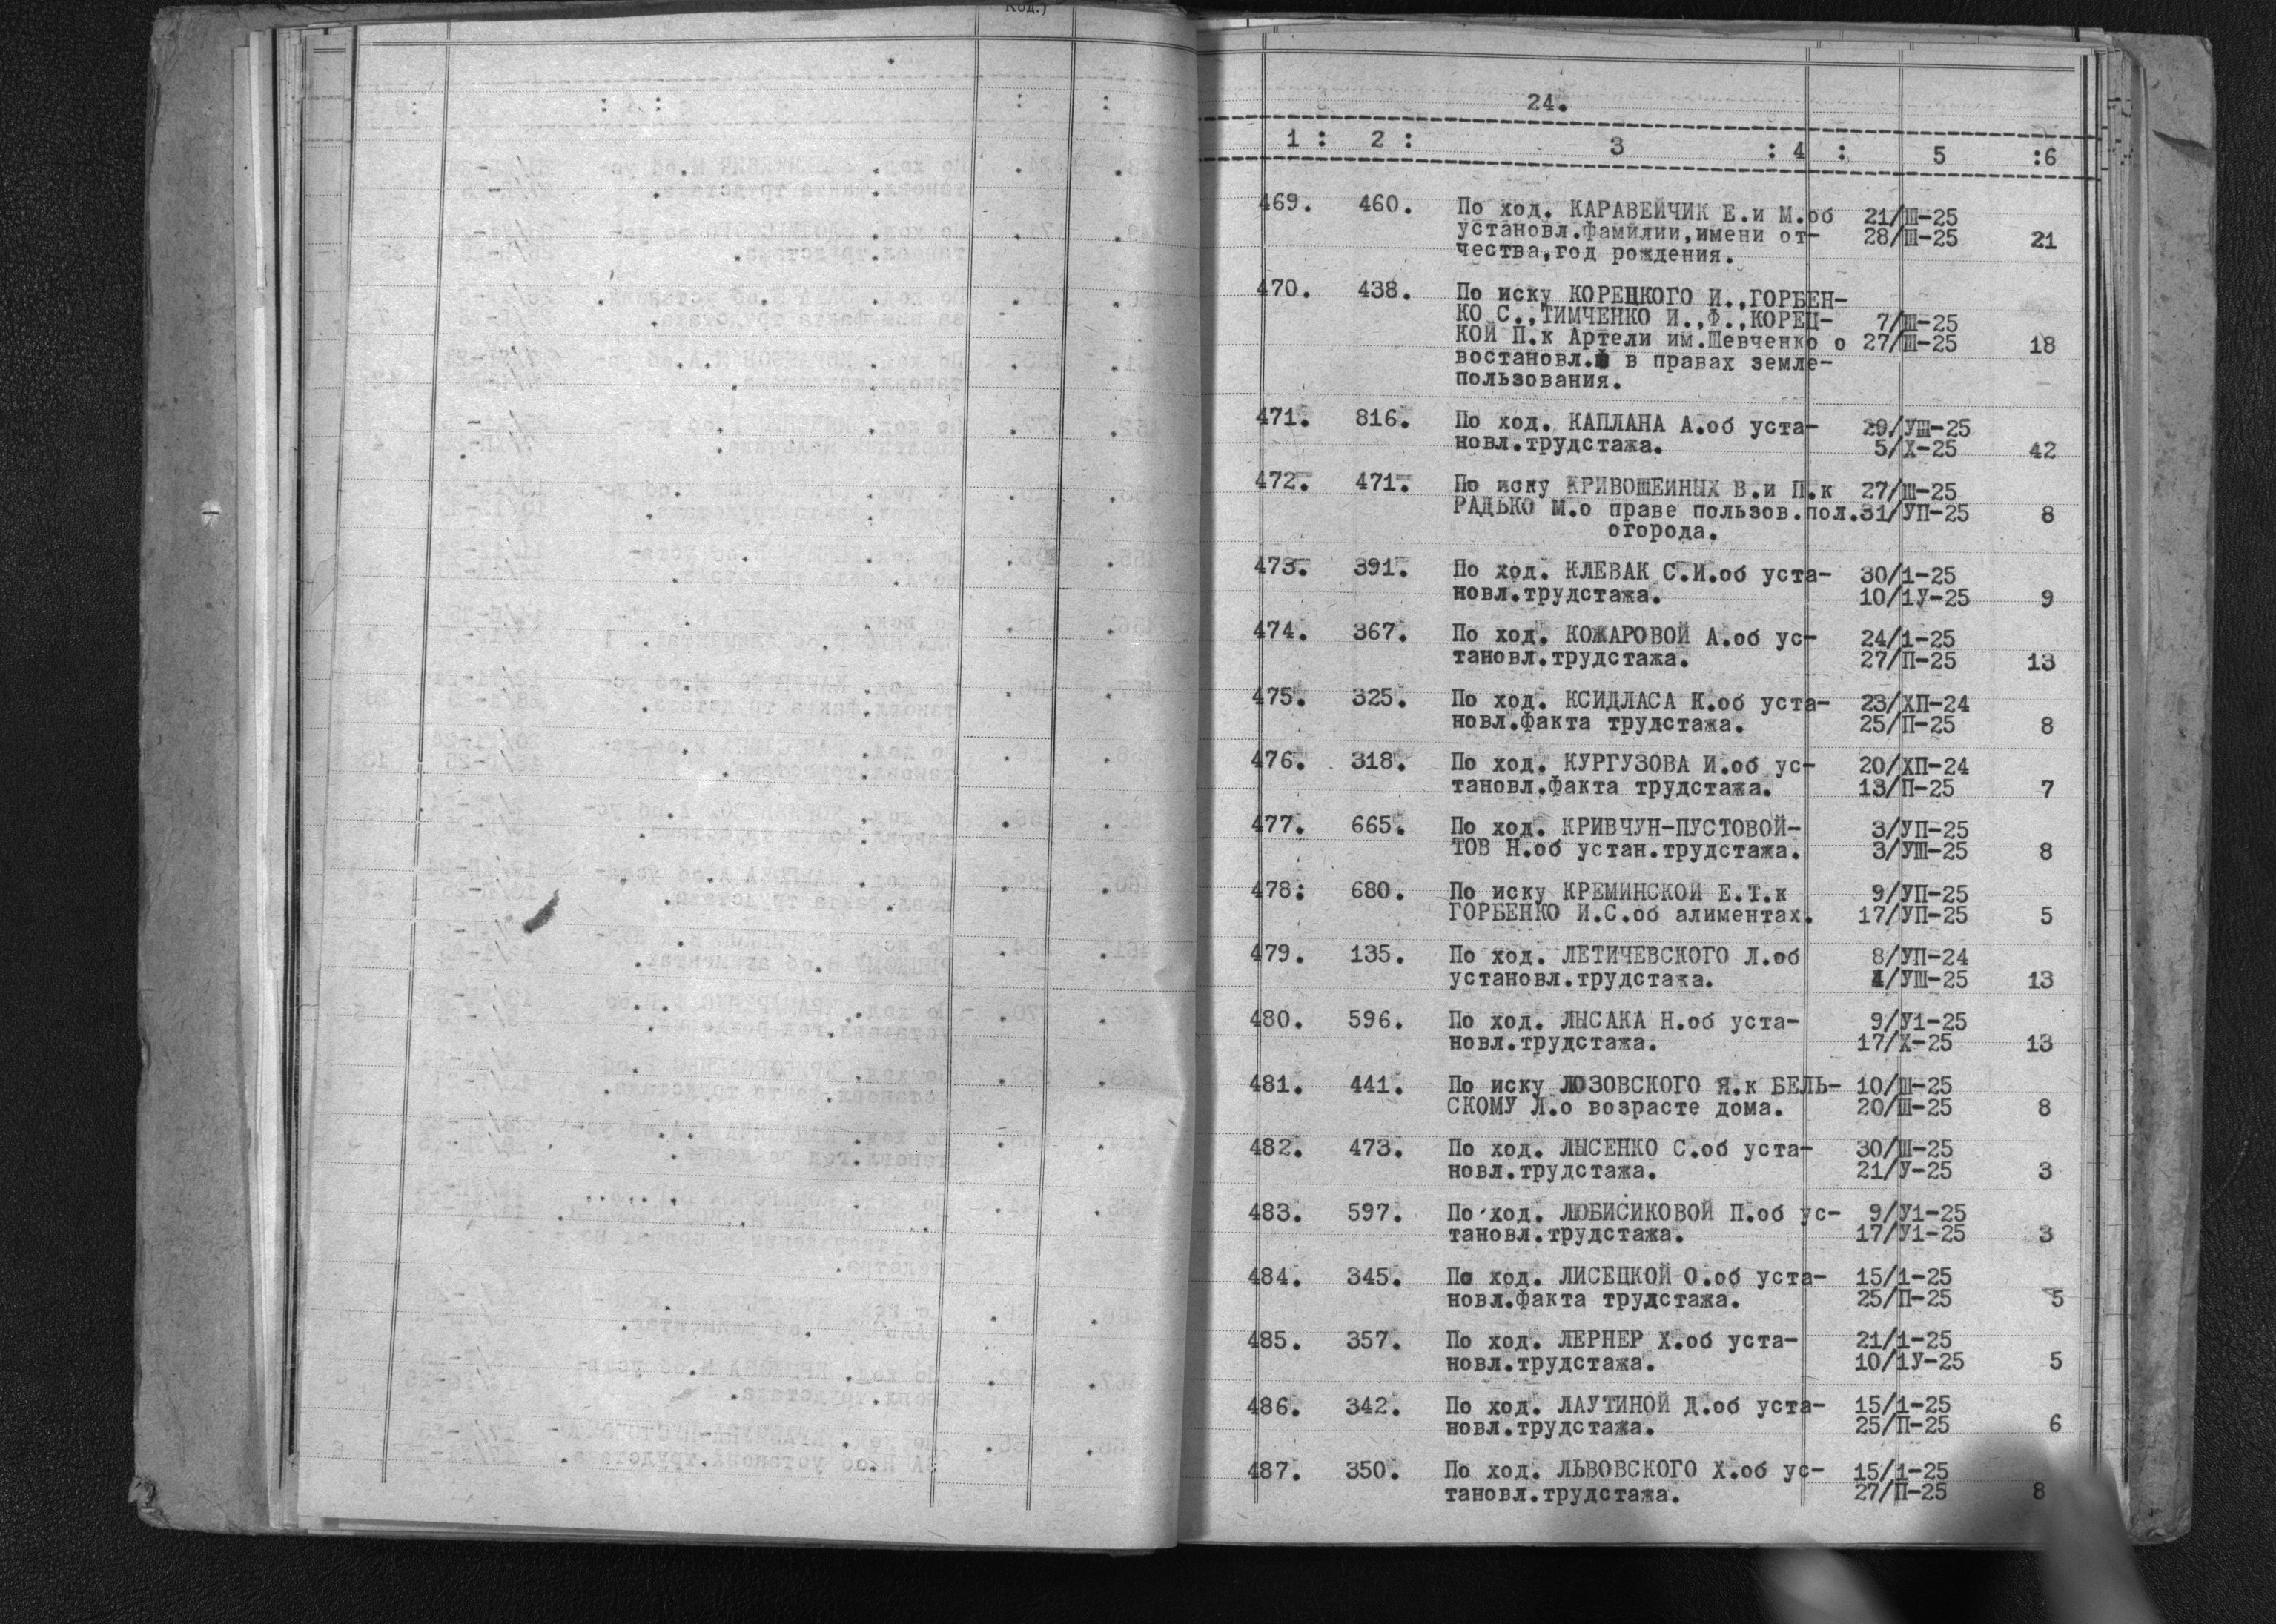 Код.)
24.
1 : 2 : 3 : 4 : 5 :6
469. 460. По ход. КАРАВЕЙЧИК Е.и М.об 21/Ш-25
установл.фамилии,имени от- 28/Ш-25 21
чества,год рождения.
470. 438. По иску КОРЕЦКОГО И.,ГОРБЕН-
КО С.,ТИМЧЕНКО И.,Ф.,КОРЕЦ- 7/Ш-25
КОЙ П.к Артели им.Шевченко о 27/Ш-25 18
востановл. в правах земле-
пользования.
471. 816. По ход. КАПЛАНА А.об уста- 29/УШ-25
новл.трудстажа. 5/Х-25 42
472. 471. По иску КРИВОШЕИНЫХ В.и П.к 27/Ш-25
РАДЬКО М.о праве пользов.пол.31/УП-25 8
огорода.
473. 391. По ход. КЛЕВАК С.И.об уста- 30/1-25
новл.трудстажа. 10/1У-25 9
474. 367. По ход. КОЖАРОВОЙ А.об ус- 24/1-25
тановл.трудстажа. 27/П-25 13
475. 325. По ход. КСИДЛАСА К.об уста- 23/ХП-24
новл.факта трудстажа. 25/П-25 8
476. 318. По ход. КУРГУЗОВА И.об ус- 20/ХП-24
тановл.факта трудстажа. 13/П-25 7
477. 665. По ход. КРИВЧУН-ПУСТОВОЙ- 3/УП-25
ТОВ Н.об устан.трудстажа. 3/УШ-25 8
478: 680. По иску КРЕМИНСКОЙ Е.Т.к 9/УП-25
ГОРБЕНКО И.С.об алиментах. 17/УП-25 5
479. 135. По ход. ЛЕТИЧЕВСКОГО Л.об 8/УП-24
установл.трудстажа. 4/УШ-25 13
480. 596. По ход. ЛЫСАКА Н.об уста- 9/У1-25
новл.трудстажа. 17/Х-25 13
481. 441. По иску ЛОЗОВСКОГО Я.к БЕЛЬ- 10/Ш-25
СКОМУ Л.о возрасте дома. 20/Ш-25 8
482. 473. По ход. ЛЫСЕНКО С.об уста- 30/Ш-25
новл.трудстажа. 21/У-25 3
483. 597. По ход. ЛЮБИСИКОВОЙ П.об ус- 9/У1-25
тановл.трудстажа. 17/У1-25 3
484. 345. По ход. ЛИСЕЦКОЙ О.об уста- 15/1-25
новл.факта трудстажа. 25/П-25 5
485. 357. По ход. ЛЕРНЕР Х.об уста- 21/1-25
новл.трудстажа. 10/1У-25 5
486. 342. По ход. ЛАУТИНОЙ Д.об уста- 15/1-25
новл.трудстажа. 25/П-25 6
487. 350. По ход. ЛЬВОВСКОГО Х.об ус- 15/1-25
тановл.трудстажа. 27/П-25 8